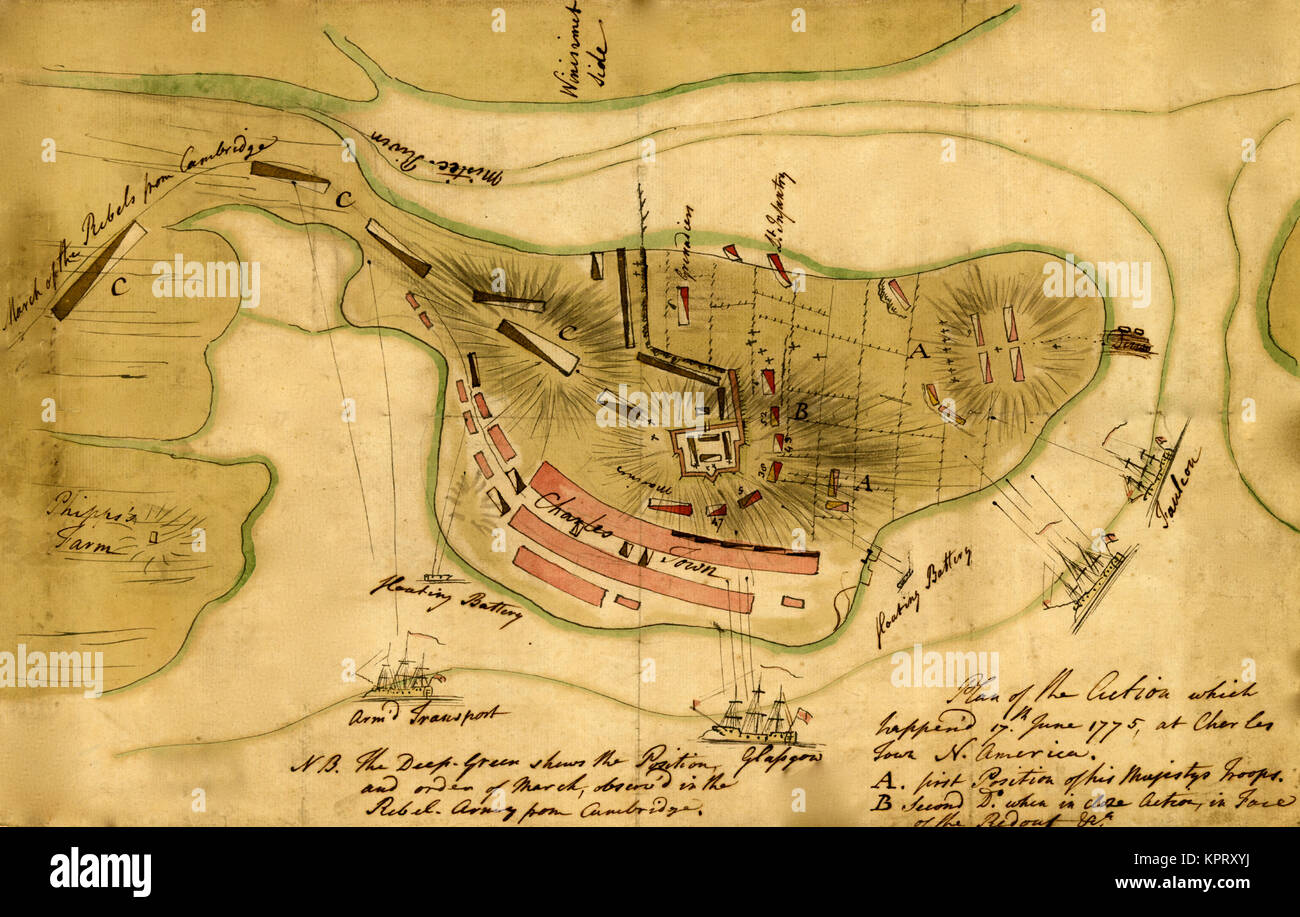 Winisimet
side
Mistic River
March of the Rebels from Cambridge
C
C
C
Grenadiers
Lt. Infantry
A
B
52
43
38
A
5
47
Charles Town
Phipps's
Farm
floating Battery
floating Battery
Faulcon
Arm'd Transport
Glasgow
N.B. The Deep-Green shews the Position,
and order of March, observed in the
Rebel-Army from Cambridge.
Plan of the Action which
happen'd 17.th June 1775, at Charles
Town N. America.
A. first Position of his Majestys Troops.
B Second Do. when in close Action, in Face
of the Redout &ca.
alamy
Image ID: KPRXYJ
www.alamy.com